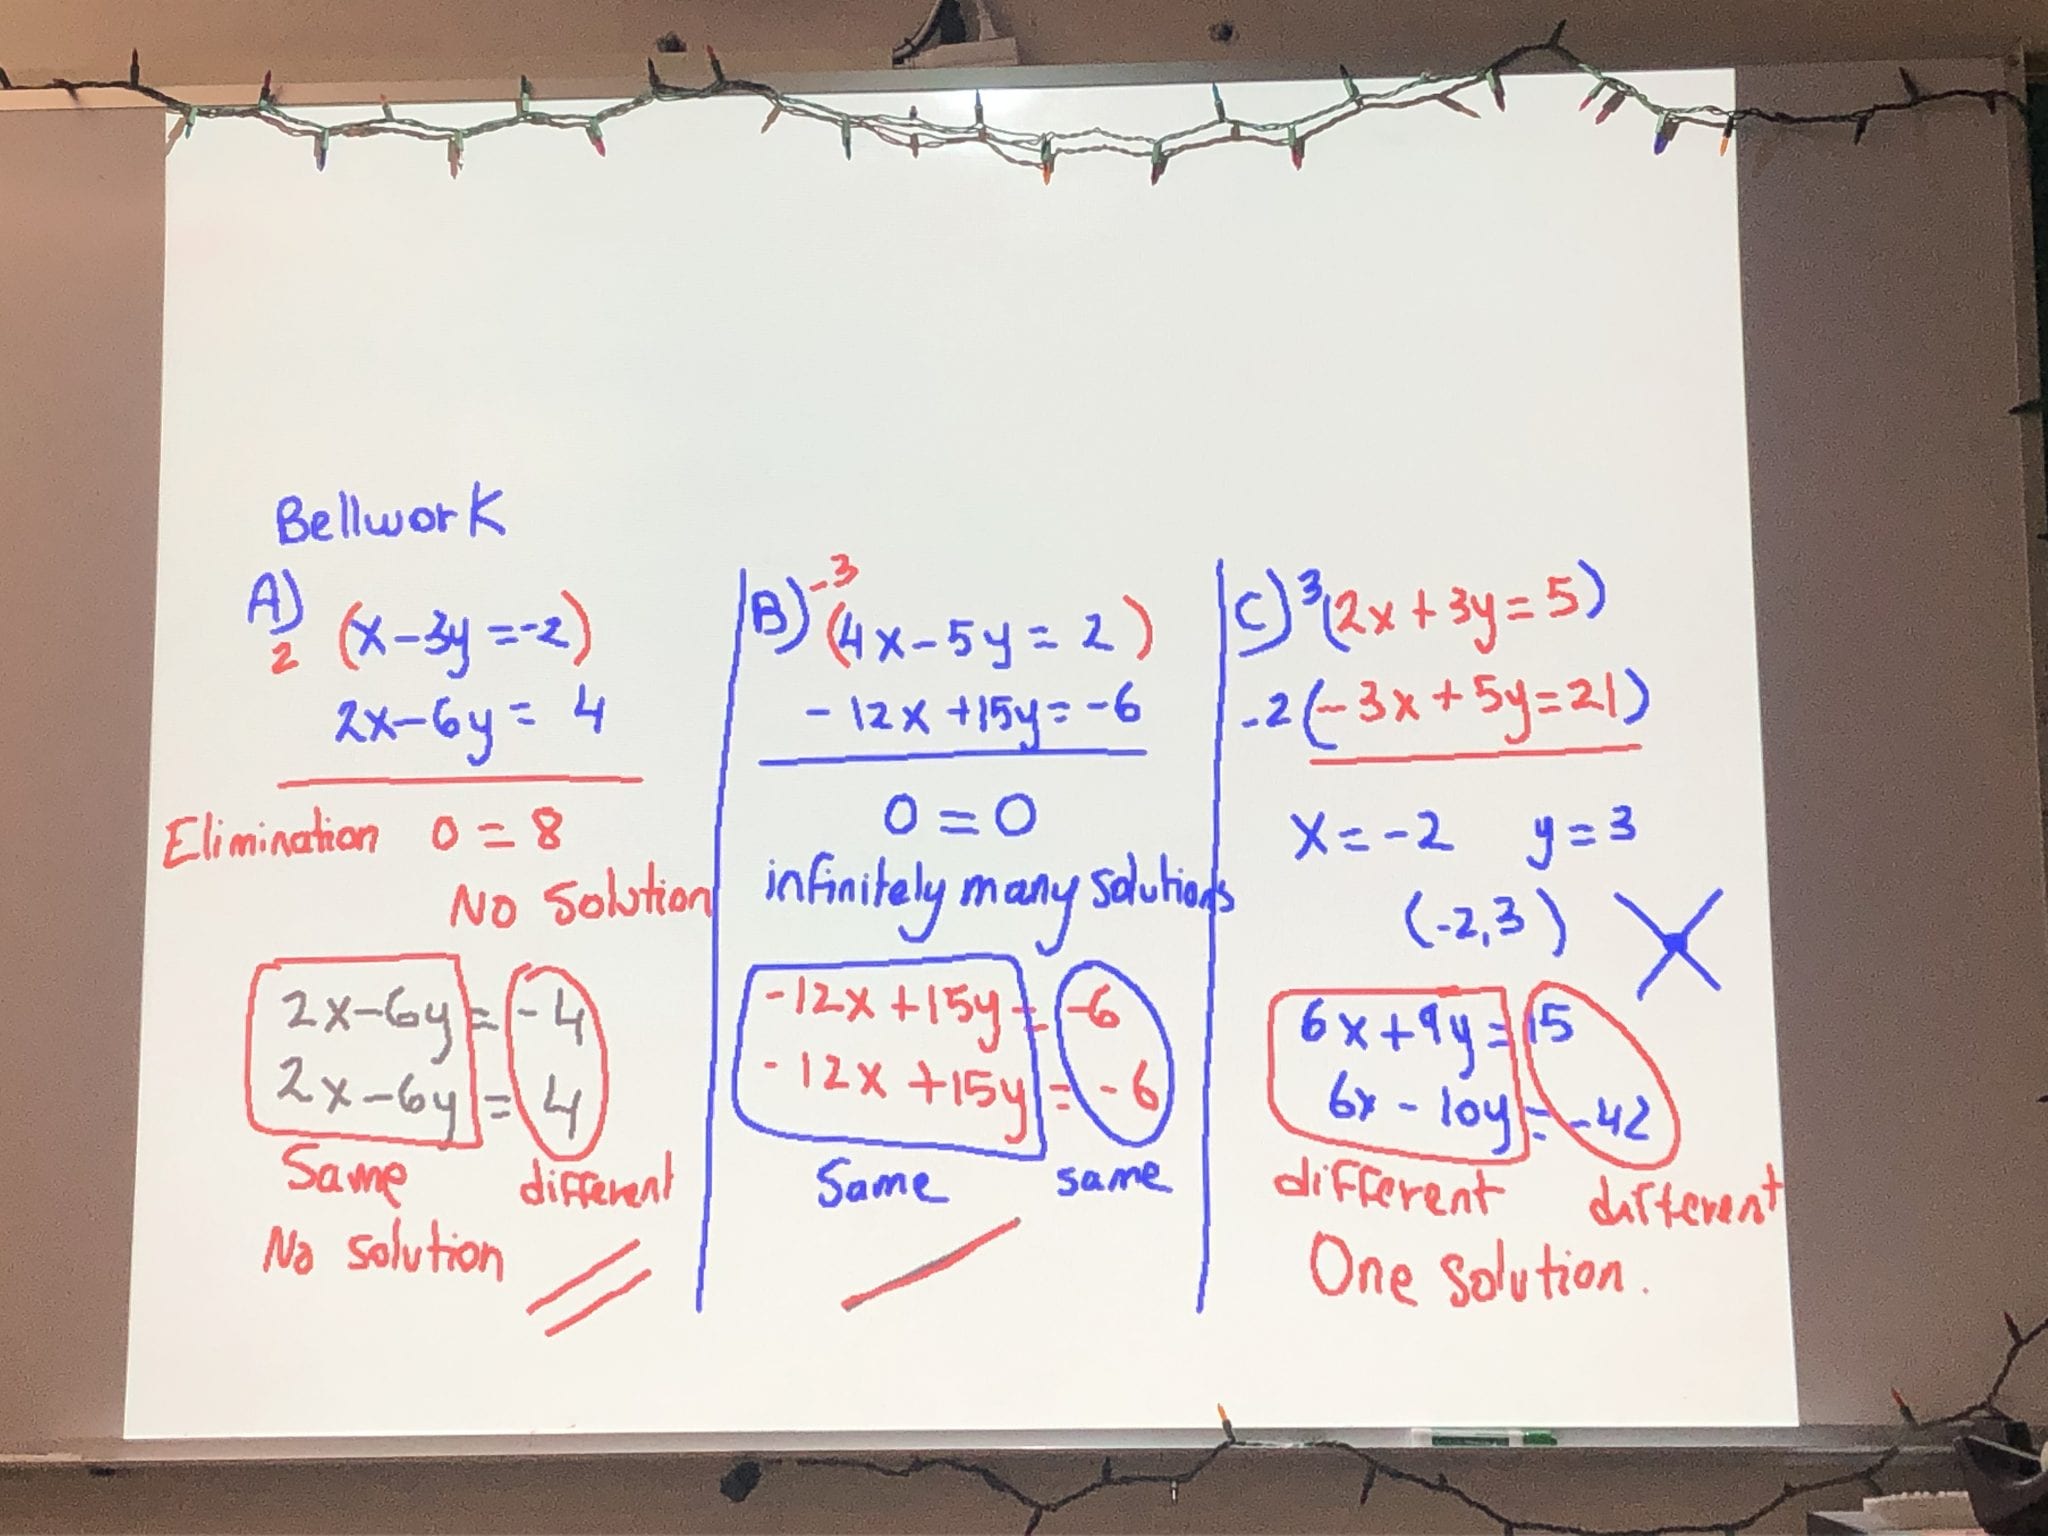 Bellwork
A)
2 (x-3y=-2)
2x-6y= 4
Elimination 0=8
No Solution
2x-6y=-4
2x-6y= 4
Same different
No solution
B) -3(4x-5y= 2)
-12x+15y=-6
0=0
infinitely many solutions
-12x+15y=-6
-12x+15y=-6
Same same
C) 3(2x+3y=5)
-2(-3x+5y=21)
x=-2 y=3
(-2,3)
6x+9y=15
6x-10y=-42
different different
One solution.